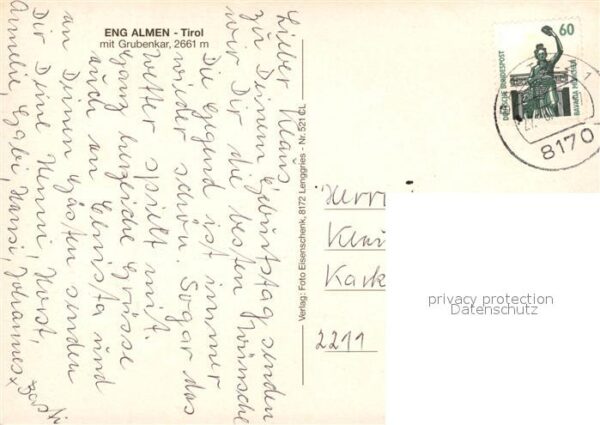 ENG ALMEN - Tirol
mit Grubenkar, 2661 m
Lieber Klaus
zu Deinem Geburtstag senden
wir Dir die besten Wünsche
Die Gegend ist immer
wieder schön. Sogar das
wetter spielt mit.
ganz herzliche Grüsse
auch an Christa und
an Deinen Gästen senden
Dir Deine Henni, Horst,
Amelie, Gabi, Hansi, Johannes x
Basti
Verlag: Foto Eisenschenk, 8172 Lenggries - Nr. 521 CL
60
DEUTSCHE BUNDESPOST
BAVARIA MÜNCHEN
8170
Herrn
2211
privacy protection
Datenschutz